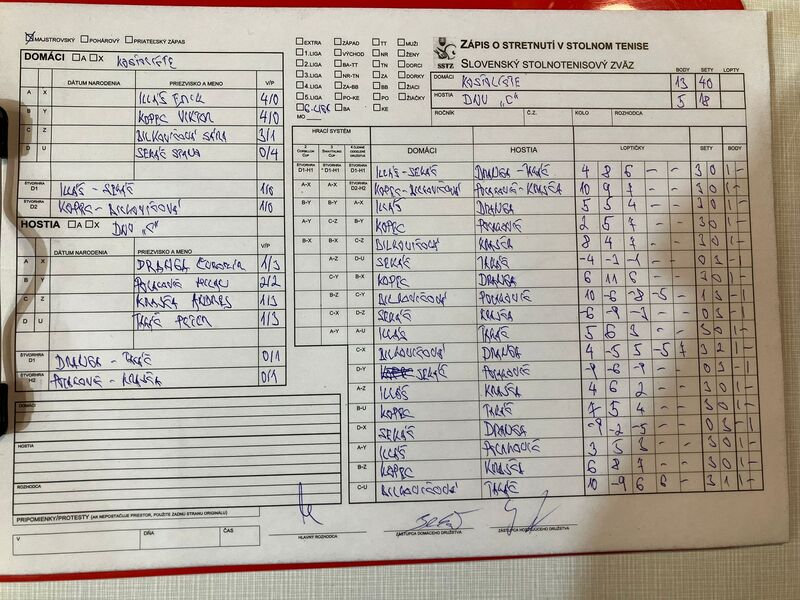 MAJSTROVSKÝ POHÁROVÝ PRIATEĽSKÝ ZÁPAS
DOMÁCI A X KOSTOLIŠTE
DÁTUM NARODENIA PRIEZVISKO A MENO V/P
A X ILLÁŠ ERIK 4/0
B Y KOPEC VIKTOR 4/0
C Z BILKOVIČOVÁ SÁRA 3/1
D U SEKÁČ 0/4
ŠTVORHRA D1 ILLÁŠ - SEKÁČ 1/0
ŠTVORHRA D2 KOPEC - BILKOVIČOVÁ 1/0
HOSTIA A X DNV "C"
DÁTUM NARODENIA PRIEZVISKO A MENO V/P
A X DRANGA 1/3
B Y 2/2
C Z KRAJČA ANDREJ 1/3
D U PETER 1/3
ŠTVORHRA D1 DRANGA - 0/1
ŠTVORHRA H2 - KRAJČA 0/1
DOMÁCI
HOSTIA
ROZHODCA
PRIPOMIENKY/PROTESTY (AK NEPOSTAČUJE PRIESTOR, POUŽITE ZADNÚ STRANU ORIGINÁLU)
V DŇA ČAS
EXTRA ZÁPAD TT MUŽI
1.LIGA VÝCHOD NR ŽENY
2.LIGA BA-TT TN DORCI
3.LIGA NR-TN ZA DORKY
4.LIGA ZA-BB BB ŽIACI
5.LIGA PO-KE PO ŽIAČKY
6.LIGA BA KE
MO
SSTZ
ZÁPIS O STRETNUTÍ V STOLNOM TENISE
SLOVENSKÝ STOLNOTENISOVÝ ZVÄZ
BODY SETY LOPTY
DOMÁCI KOSTOLIŠTE 13 40
HOSTIA DNV "C" 5 18
ROČNÍK Č.Z. KOLO ROZHODCA
HRACÍ SYSTÉM
DOMÁCI HOSTIA LOPTIČKY SETY BODY
ŠTVORHRA D1-H1 ŠTVORHRA D1-H1 ŠTVORHRA D1-H1 ILLÁŠ - SEKÁČ DRANGA - 4 8 6 - - 3 0 1 -
A-X A-X ŠTVORHRA D2-H2 KOPEC - BILKOVIČOVÁ - KRAJČA 10 9 7 - - 3 0 1 -
B-Y B-Y A-X ILLÁŠ DRANGA 5 5 4 - - 3 0 1 -
A-Y C-Z B-Y KOPEC 2 5 7 - - 3 0 1 -
B-X B-X C-Z BILKOVIČOVÁ KRAJČA 8 4 7 - - 3 0 1 -
A-Z D-U SEKÁČ -4 -3 -1 - - 0 3 - 1
C-Y B-X KOPEC DRANGA 6 11 6 - - 3 0 1 -
B-Z C-Y BILKOVIČOVÁ 10 -6 -8 -5 - 1 3 - 1
C-X D-Z SEKÁČ KRAJČA -6 -9 -3 - - 0 3 - 1
A-Y A-U ILLÁŠ 5 6 3 - - 3 0 1 -
C-X BILKOVIČOVÁ DRANGA 4 -5 5 -5 7 3 2 1 -
D-Y SEKÁČ -9 -6 -9 - - 0 3 - 1
A-Z ILLÁŠ KRAJČA 4 6 2 - - 3 0 1 -
B-U KOPEC 7 5 4 - - 3 0 1 -
D-X SEKÁČ DRANGA -9 -2 -5 - - 0 3 - 1
A-Y ILLÁŠ 3 5 3 - - 3 0 1 -
B-Z KOPEC KRAJČA 6 8 7 - - 3 0 1 -
C-U BILKOVIČOVÁ 10 -9 6 8 - 3 1 1 -
HLAVNÝ ROZHODCA
ZÁSTUPCA DOMÁCEHO DRUŽSTVA
ZÁSTUPCA HOSŤUJÚCEHO DRUŽSTVA